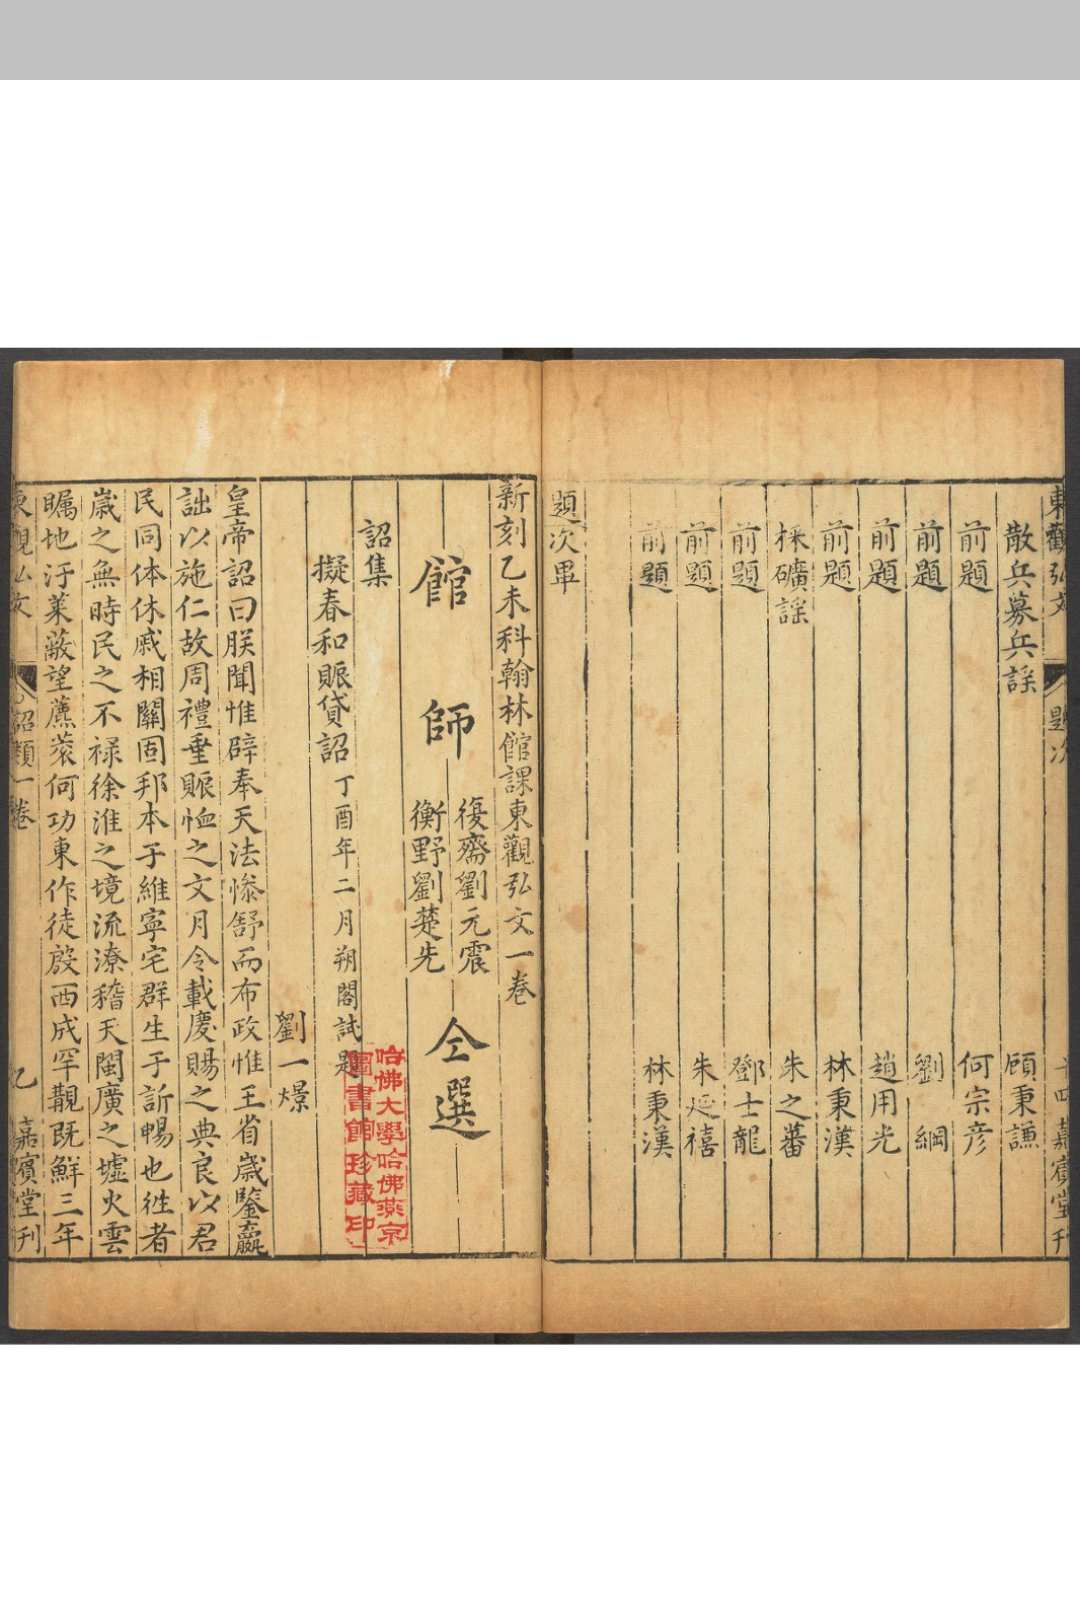 東觀弘文 題次 十四 嘉賓堂刊
散兵募兵謡 顧秉謙
前題 何宗彦
前題 劉綱
前題 趙用光
前題 林秉漢
採礦謡 朱之蕃
前題 鄧士龍
前題 朱延禧
前題 林秉漢
題次畢
新刻乙未科翰林館課東觀弘文一卷
館師 復齋劉元震
衡野劉楚先 仝選
詔集
擬春和賑貸詔 丁酉年二月朔閣試題
劉一燝
皇帝詔曰朕聞惟辟奉天法慘舒而布政惟王省歳鑒贏
詘以施仁故周禮垂賑恤之文月令載慶賜之典良以君
民同体休戚相關固邦本于維寧宅群生于訢暢也徃者
歳之無時民之不禄徐淮之境流潦稽天閩廣之墟火雲
矚地汙莱蔽望藨蓘何功東作徒殷西成罕覯既鮮三年
東觀弘文 詔類一卷 乙 嘉賓堂刊
哈佛大學哈佛燕京
圖書館珍藏印